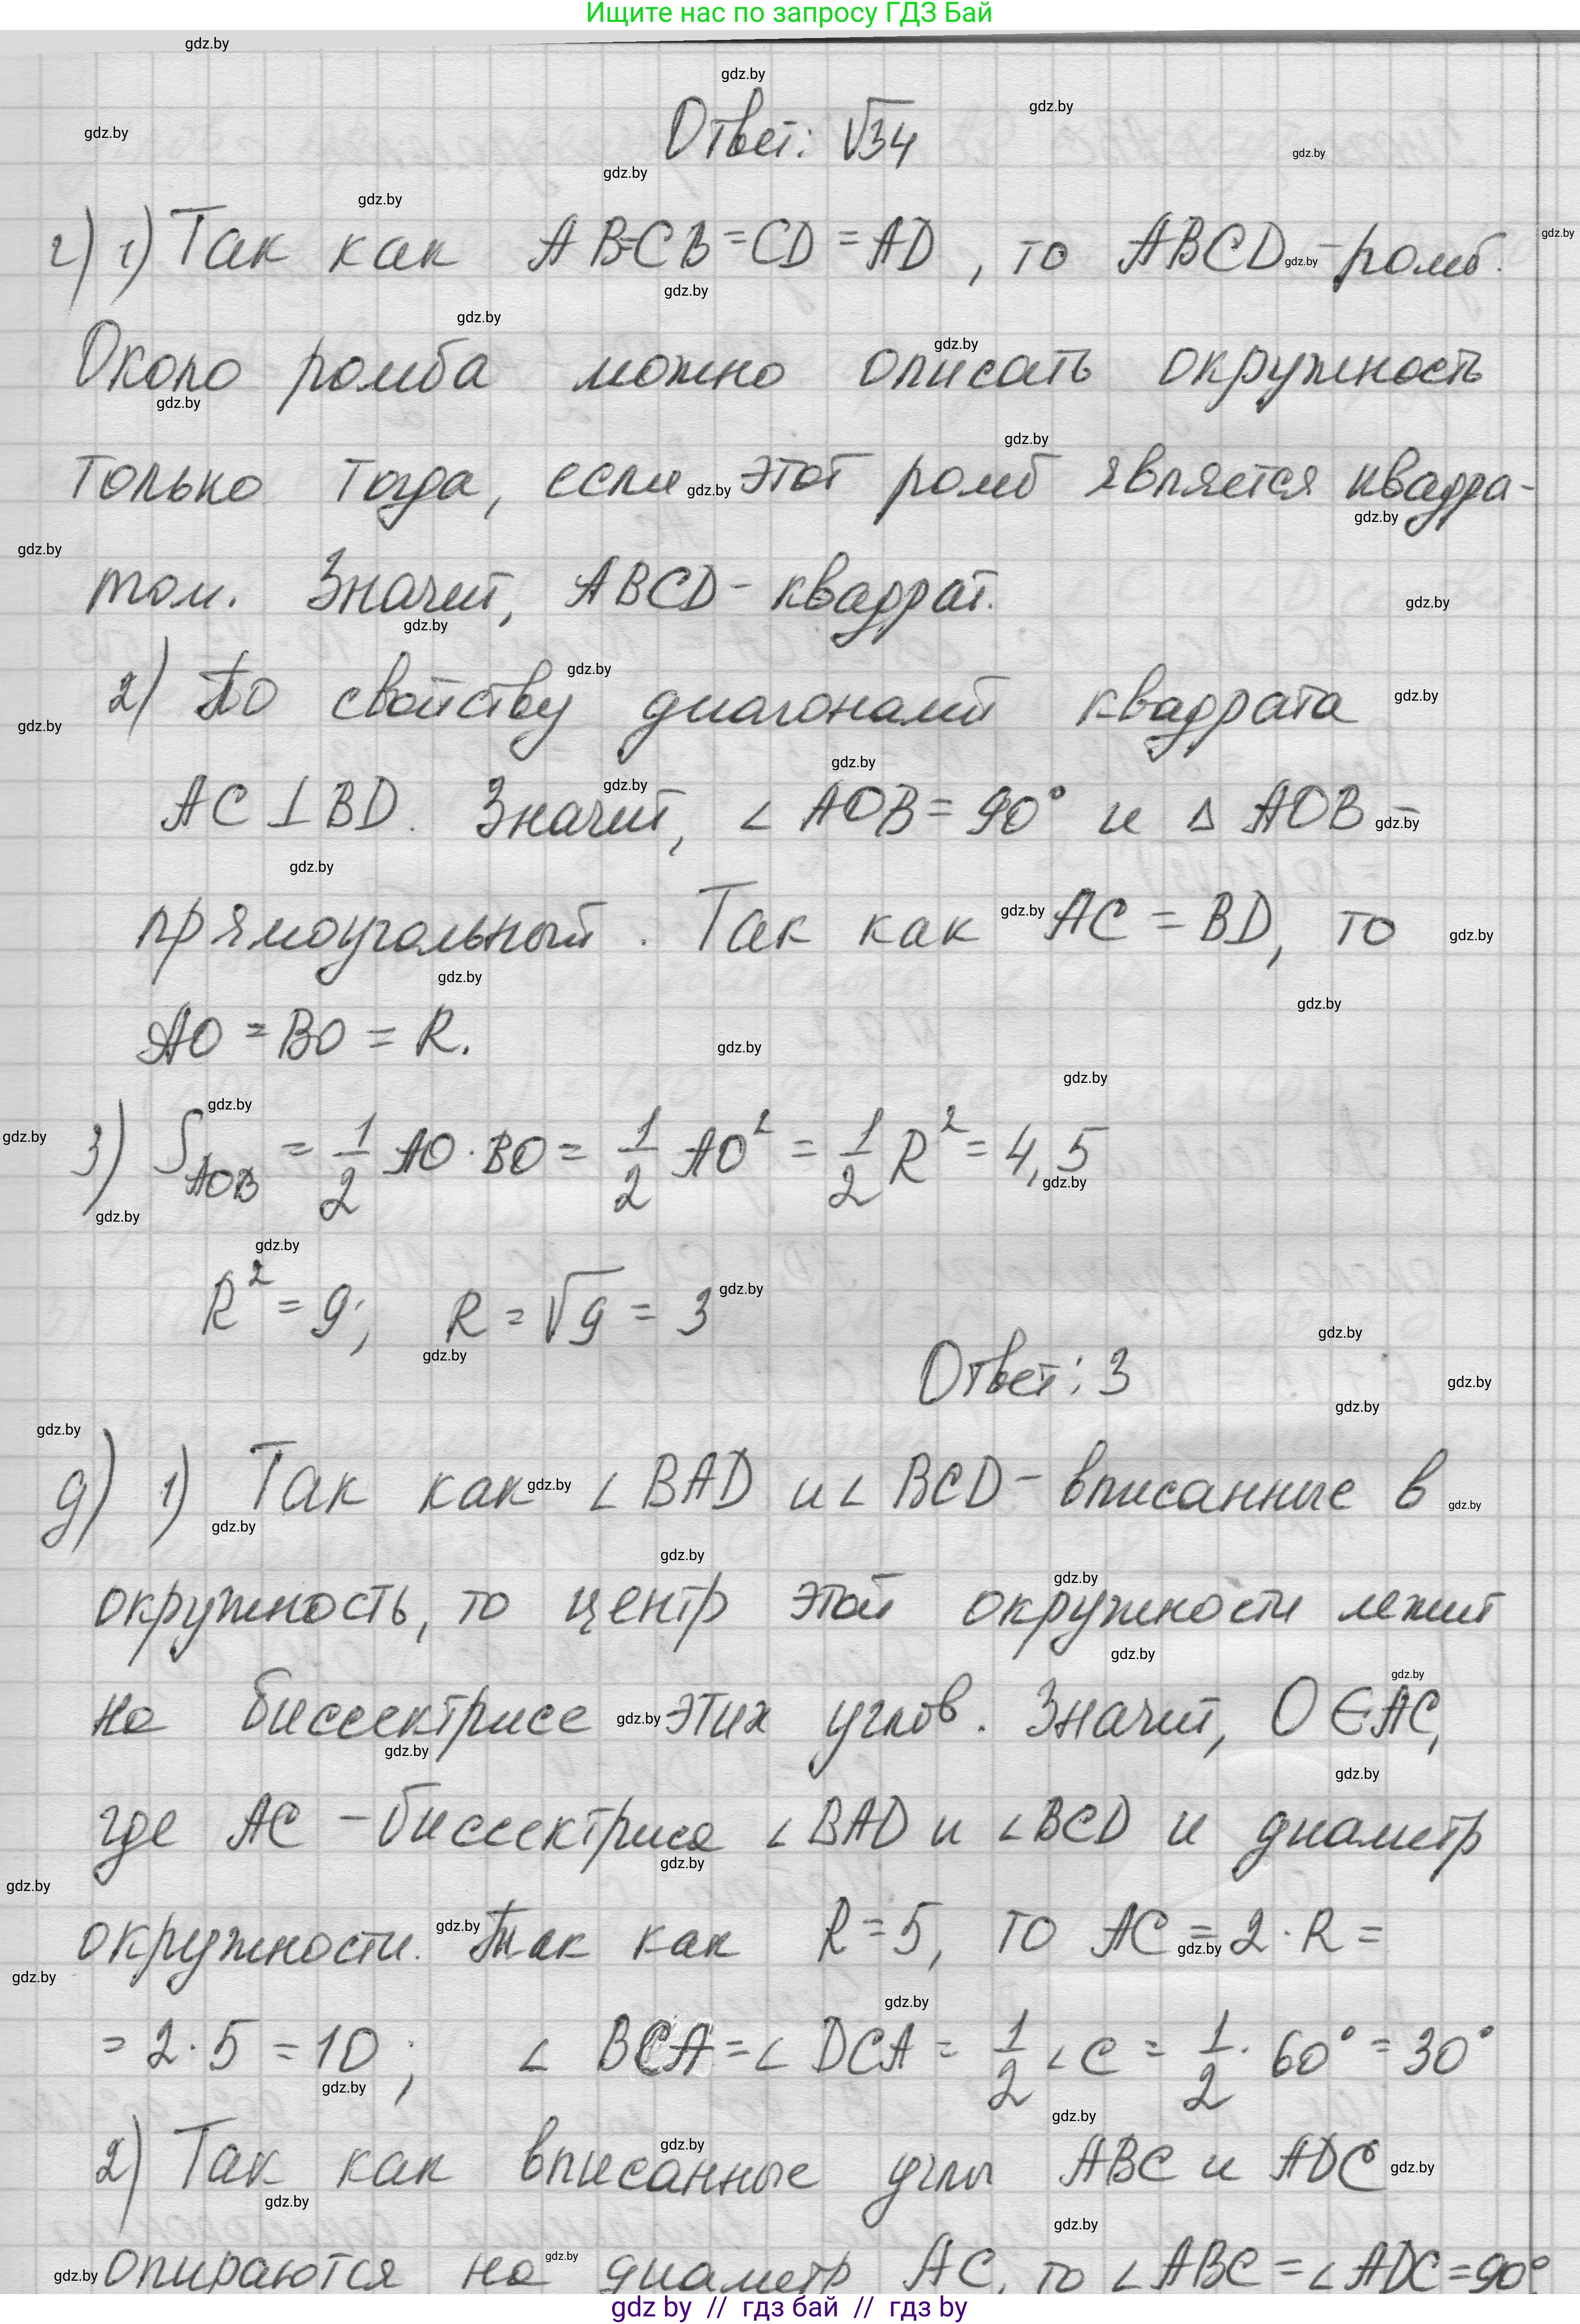 Ищите нас по запросу ГДЗ Бай
Ответ: √34
г) 1) Так как AB=CB=CD=AD, то ABCD - ромб.
Около ромба можно описать окружность
только тогда, если этот ромб является квадра-
том. Значит, ABCD - квадрат.
2) По свойству диагоналей квадрата
AC⊥BD. Значит, ∠AOB=90° и △AOB -
прямоугольный. Так как AC=BD, то
AO=BO=R.
3) S_AOB = 1/2 AO·BO = 1/2 AO² = 1/2 R² = 4,5
R²=9; R=√9=3
Ответ: 3
д) 1) Так как ∠BAD и ∠BCD - вписанные в
окружность, то центр этой окружности лежит
на биссектрисе этих углов. Значит, O∈AC,
где AC - биссектриса ∠BAD и ∠BCD и диаметр
окружности. Так как R=5, то AC=2·R=
=2·5=10; ∠BCA=∠DCA=1/2∠C=1/2·60°=30°
2) Так как вписанные углы ABC и ADC
опираются на диаметр AC, то ∠ABC=∠ADC=90°
gdz by // гдз бай // гдз by